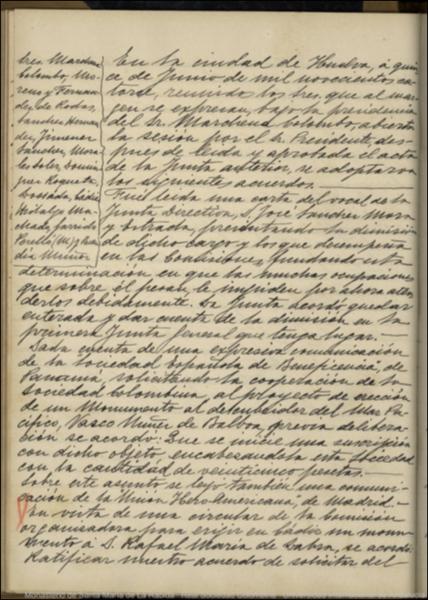 tres. Marchena
Colombo, Mo-
reno y Fernan-
dez de Rodas,
Sanchez Hernan-
dez, Jimenez
Sanchez, Mora-
les Soler, Domin-
guez Roqueta,
Cádiz
Hidalgo Ma-
chado, Garrido
Perelló (M.) y
dia Muñoz
En la ciudad de Huelva, á quin
ce de Junio de mil novecientos ca-
torce, reunidos los tres. que al mar-
gen se expresan, bajo la presidencia
del Sr. Marchena Colombo, abierta
la sesión por el Sr. Presidente, des-
pues de leida y aprobada el acta
de la Junta anterior, se adoptaron
los siguientes acuerdos.
Fué leida una carta del vocal de la
Junta Directiva, D. José Sanchez Mora
y presentando la dimisión
de dicho cargo y los que desempeña
en las Comisiones, fundando esta
determinación en que las muchas ocupaciones
que sobre él pesan, le impiden por ahora aten-
derlos debidamente. La Junta acordó quedar
enterada y dar cuenta de la dimisión en la
primera Junta General que tenga lugar.—
Dada cuenta de una expresiva comunicación
de la Sociedad Española de Beneficencia, de
Panamá, solicitando la cooperación de la
Sociedad Colombina al proyecto de erección
de un Monumento al descubridor del Mar Pa-
cífico, Vasco Nuñez de Balboa, previa delibera-
ción se acordó: Que se inicie una suscripción
con dicho objeto, encabezandola esta Sociedad
con la cantidad de veinticinco pesetas.—
Sobre este asunto se leyó también una comuni-
cación de la "Unión Ibero-Americana", de Madrid.—
En vista de una circular de la Comisión
organizadora para erigir en Cádiz un monu-
mento á D. Rafael María de Labra, se acordó:
Ratificar nuestro acuerdo de solicitar del